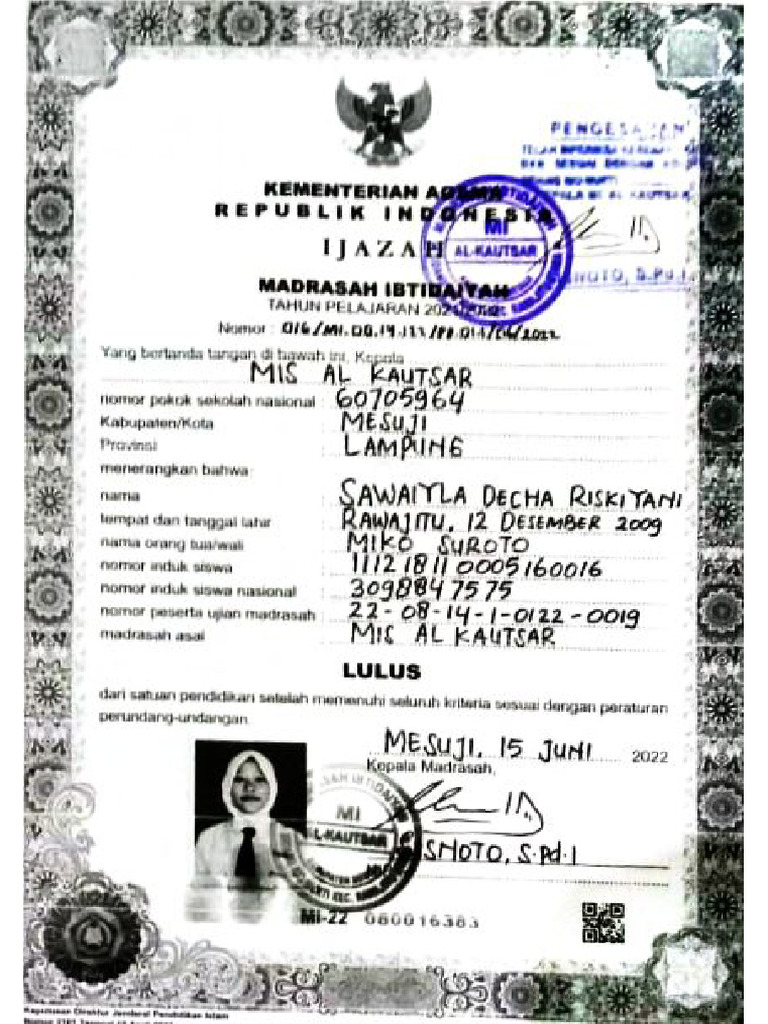 PENGESAHAN
KEMENTERIAN AGAMA
REPUBLIK INDONESIA
IJAZAH
MI
AL-KAUTSAR
MADRASAH IBTIDAIYAH
TAHUN PELAJARAN
Nomor :
Yang bertanda tangan di bawah ini, Kepala
MIS AL KAUTSAR
nomor pokok sekolah nasional : 60705964
Kabupaten/Kota : MESUJI
Provinsi : LAMPUNG
menerangkan bahwa:
nama : SAWAITLA DECHA RISKIYANI
tempat dan tanggal lahir : RAWAJITU, 12 DESEMBER 2009
nama orang tua/wali : MIKO SUROTO
nomor induk siswa : 111218110005160016
nomor induk siswa nasional : 3098847575
nomor peserta ujian madrasah : 22-08-14-1-0122-0019
madrasah asal : MIS AL KAUTSAR
LULUS
dari satuan pendidikan setelah memenuhi seluruh kriteria sesuai dengan peraturan
perundang-undangan.
MESUJI, 15 JUNI 2022
Kepala Madrasah,
MI
AL-KAUTSAR
SNOTO, S.Pd.I
MI-22 080016383
Keputusan Direktur Jenderal Pendidikan Islam